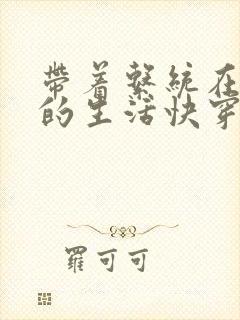 帶着繫統在
的生活快穿
羅可可